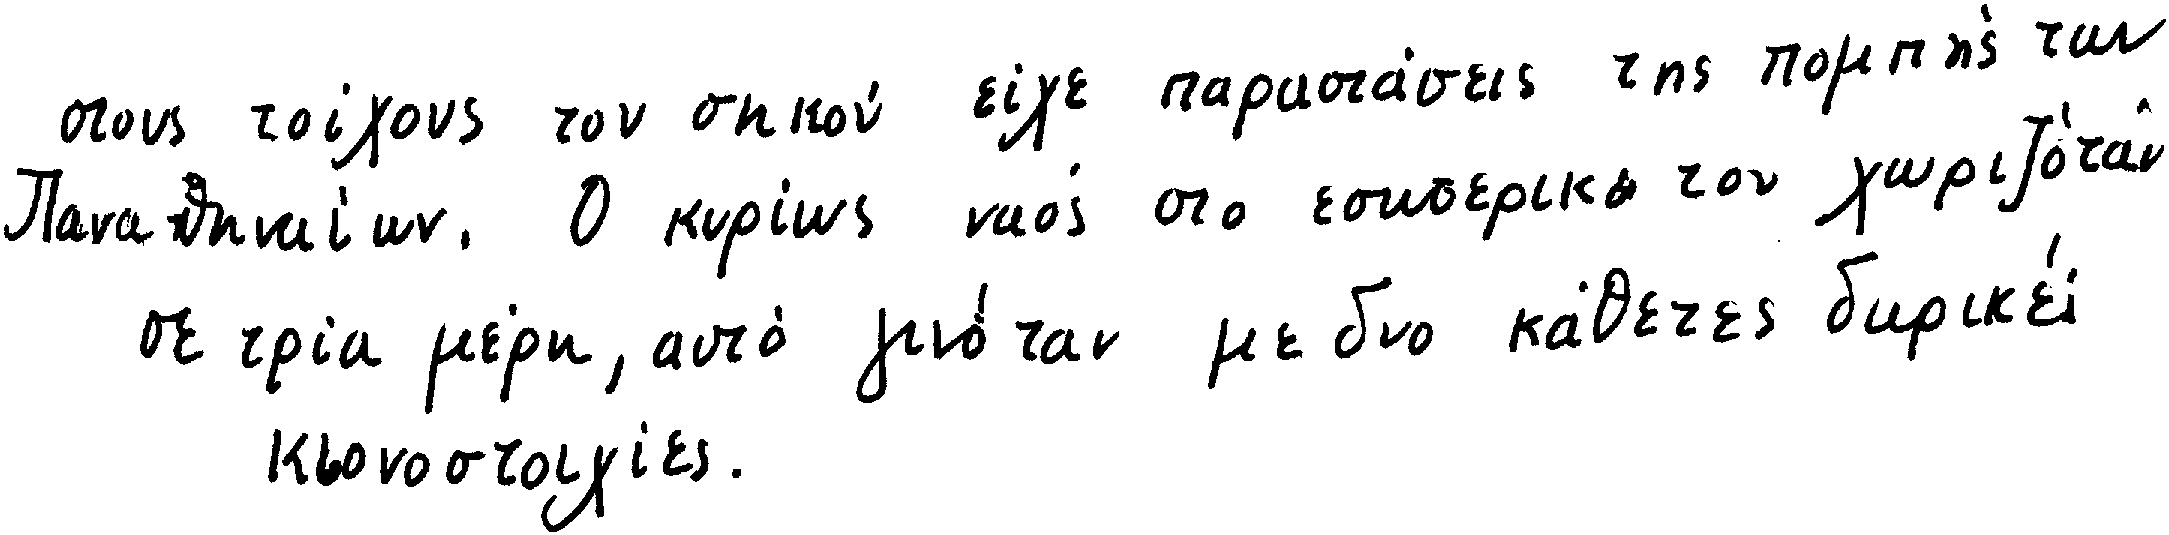 στους τοίχους του σηκού είχε παραστάσεις της πομπής των
Παναθηναίων. Ο κυρίως ναός στο εσωτερικό του χωριζόταν
σε τρία μέρη, αυτό γινόταν με δυο κάθετες δωρικές
κιονοστοιχίες.